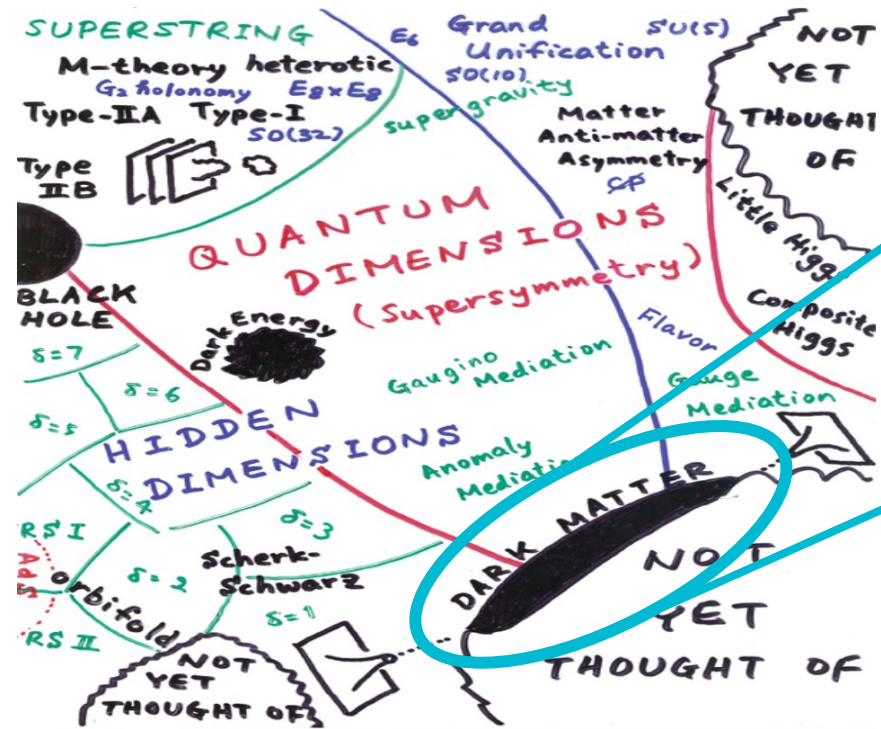 SUPERSTRING
M-theory heterotic
G2 holonomy E8xE8
Type-IIA Type-I
SO(32)
Type
IIB
E6 Grand
Unification
SU(5)
SO(10)
supergravity
Matter
Anti-matter
Asymmetry
CP
NOT
YET
THOUGHT
OF
Little Higgs
Composite
Higgs
QUANTUM
DIMENSIONS
(Supersymmetry)
BLACK
HOLE
Dark Energy
Flavor
Gaugino
Mediation
Gauge
Mediation
Anomaly
Mediation
δ=7
δ=6
δ=5
HIDDEN
DIMENSIONS
δ=4
δ=3
RS I
AdS
orbifold
δ=2
Scherk-
Schwarz
δ=1
RS II
DARK MATTER
NOT
YET
THOUGHT OF
NOT
YET
THOUGHT OF